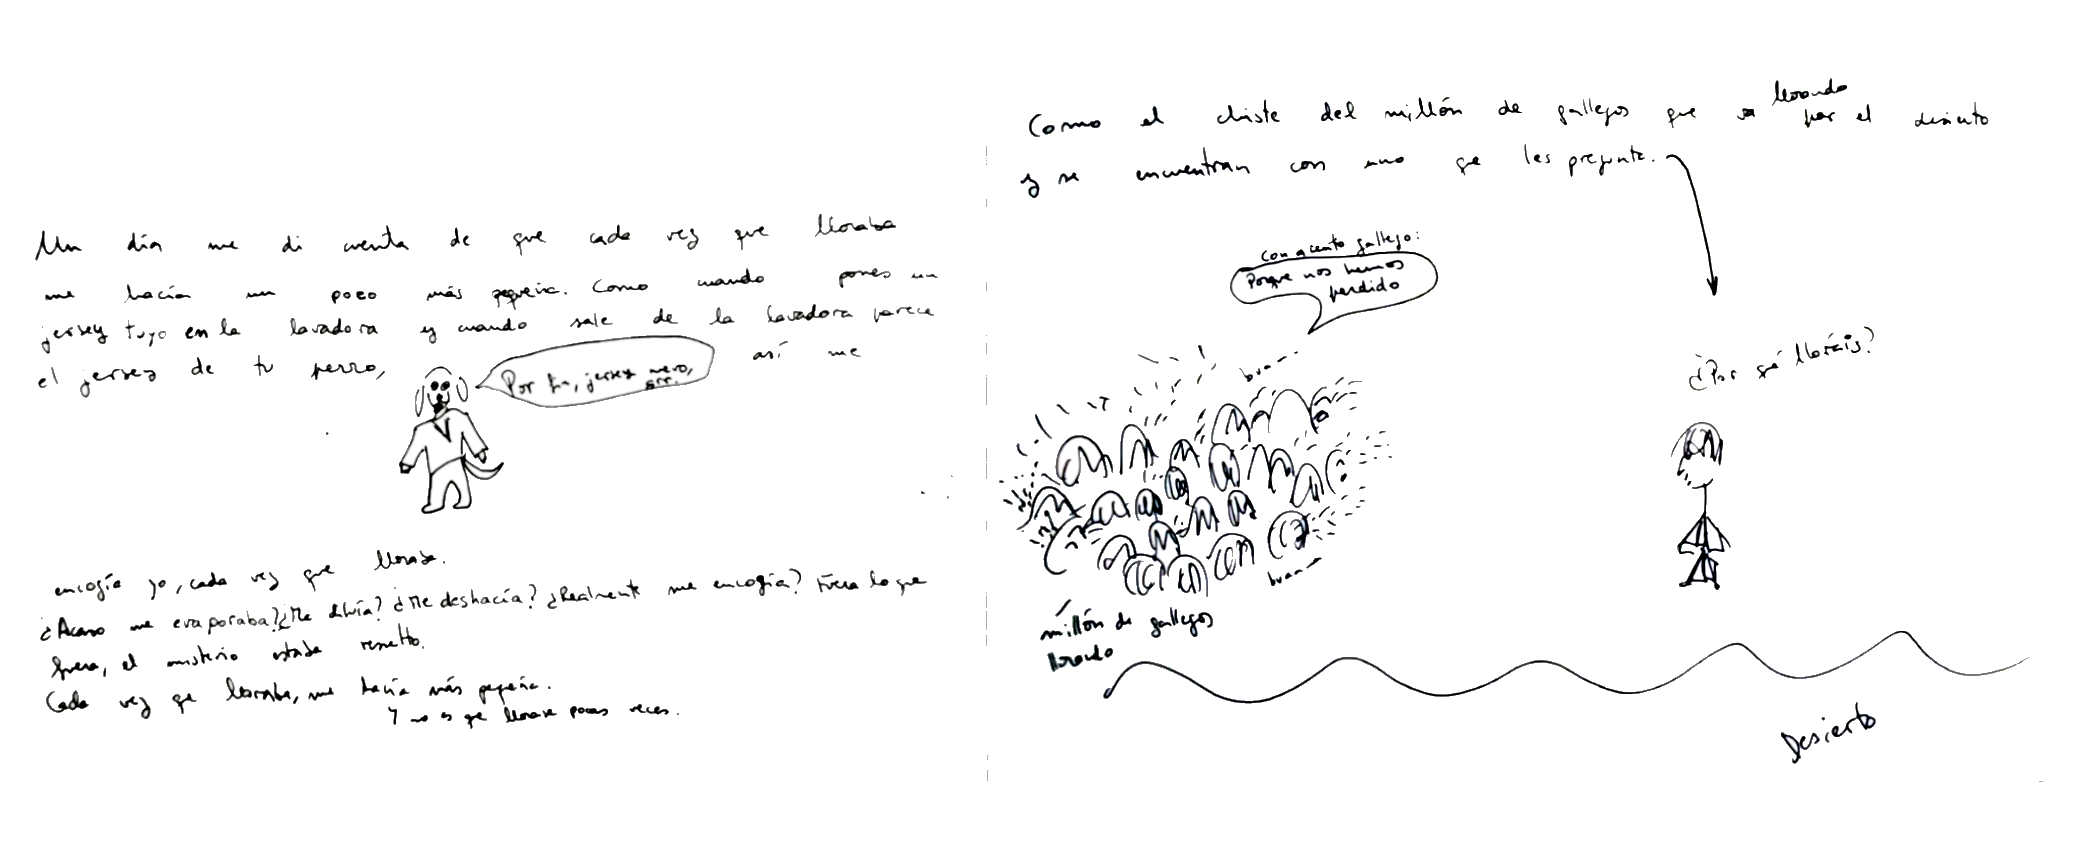 Un día me di cuenta de que cada vez que lloraba
me hacía un poco más pequeña. Como cuando pones un
jersey tuyo en la lavadora y cuando sale de la lavadora parece
el jersey de tu perro,
Por fin, jersey nuevo,
grr.
así me
encogía yo, cada vez que lloraba.
¿Acaso me evaporaba? ¿Me diluía? ¿Me deshacía? ¿Realmente me encogía? Fuera lo que
fuera, el misterio estaba resuelto.
Cada vez que lloraba, me hacía más pequeña.
Y no es que llorase pocas veces.
Como el chiste del millón de gallegos que va llorando por el desierto
y se encuentran con uno que les pregunta.
con acento gallego:
Porque nos hemos
perdido
¿Por qué lloráis?
bua
bua
millón de gallegos
llorando
Desierto